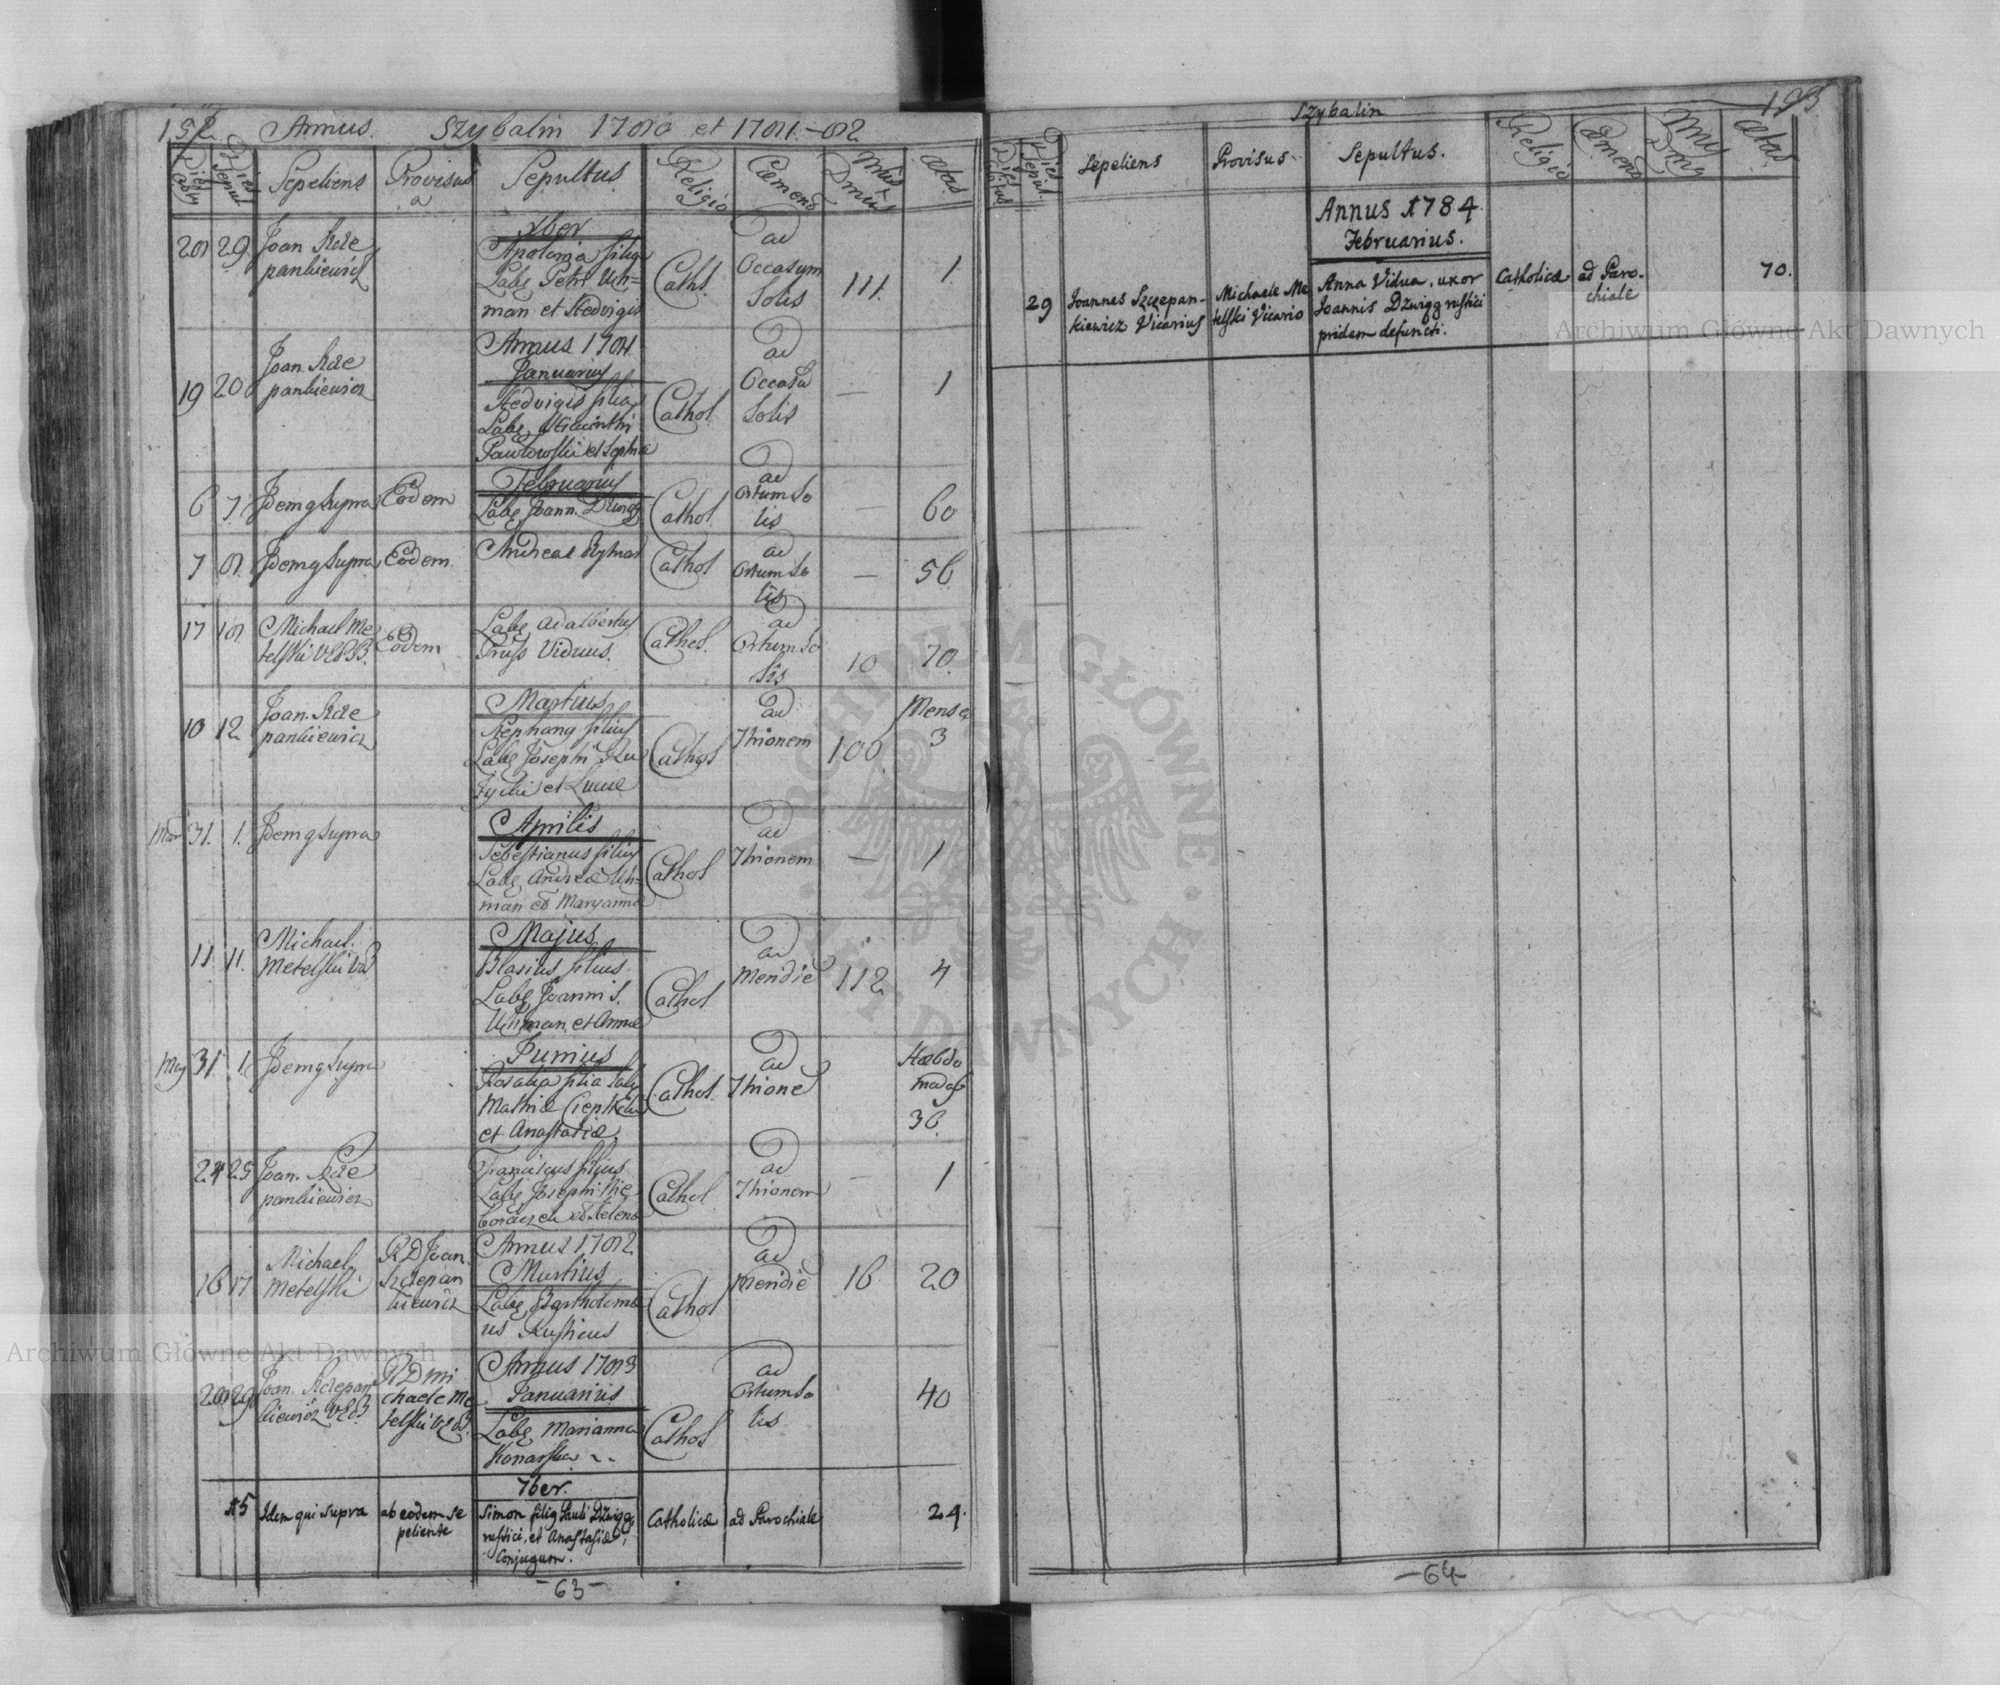 192 Annus. Szybalin 1780 et 1781.-82
Dies Obitus
Dies Sepul.
Sepeliens
Provisus a
Sepultus.
Religio
Cæmend
Nrus Dmus
Ætas
28 29
Joan Szcze
pankiewicz
Xber
Apolonia filia
Lab. Petri Uh=
man et Hedvigis
Cathol.
ad
Occasum
Solis
111.
1
19 20
Joan. Szcze
pankiewicz
Annus 1781.
Januarius
Hedvigis filia
Lab. Hiacinthi
Pawłowski et Sophiæ
Cathol
ad
Occasu
Solis
—
1
6 7.
Idem q supra
Eodem
Februarius
Lab. Joann. Dzwigg
Cathol
ad
Ortum So
lis
—
60
7 8.
Idem q supra
Eodem.
Andreas Rytnar
Cathol
ad
Ortum So
lis
—
56
17 18
Michael Me
telski
Eodem
Lab. Adalbertus
Viduus.
Cathol.
ad
Ortum So
lis
10
70.
10 12
Joan. Szcze
pankiewicz
Martius
Stephanus filius
Lab. Josephi
et Luciæ
Cathol
ad
Thionem
100
Menses
3
Mar 31. 1.
Idem q supra
Aprilis
Sebestianus filius
Lab. Andreæ Uh=
man et Maryannæ
Cathol
ad
Thionem
—
1
11 11.
Michael.
Metelski
Majus
Blasius filius.
Lab. Joannis.
Uhman. et Annæ
Cathol
ad
Meridie
112
4
May 31. 1.
Idem q supra
Junius
Rosalia filia Lab.
Mathiæ
et Anastasiæ.
Cathol.
ad
Thione
Hebdo
madas
36.
24 25
Joan. Szcze
pankiewicz
Franciscus filius
Lab. Josephi
et Helenæ
Cathol
ad
Thionem
—
1
16 17
Michael
Metelski
RD Joan.
Szczepan
kiewicz
Annus 1782
Martius
Lab. Bartholomæ
us Rusticus
Cathol
ad
Meridie
16
20
28 29
Joan. Szczepan
kiewicz
RD Mi
chaele Me
telski
Annus 1783
Januarius
Lab. Marianna
Konarska
Cathol
ad
Ortum So
lis
40
15
Idem qui supra
ab eodem se
peliente
7ber.
Simon filiq Pauli Dzwigg
rustici, et Anastasiæ,
Conjugum.
Catholicæ
ad Parochiale
24.
-63-
Szybalin
193
Dies Obitus
Dies Sepul.
Sepeliens
Provisus.
Sepultus.
Religio
Cæmend
Nrus Dmus
Ætas.
Annus 1784.
Februarius.
29
Joannes Szczepan-
kiewicz Vicarius
Michaele Me
telski Vicario
Anna Vidua, uxor
Joannis Dzwigg rustici
pridem defuncti.
Catholicæ
ad Paro-
chiale
70.
-64-
Archiwum Główne Akt Dawnych
Archiwum Główne Akt Dawnych
ARCHIWUM GŁÓWNE
AKT DAWNYCH